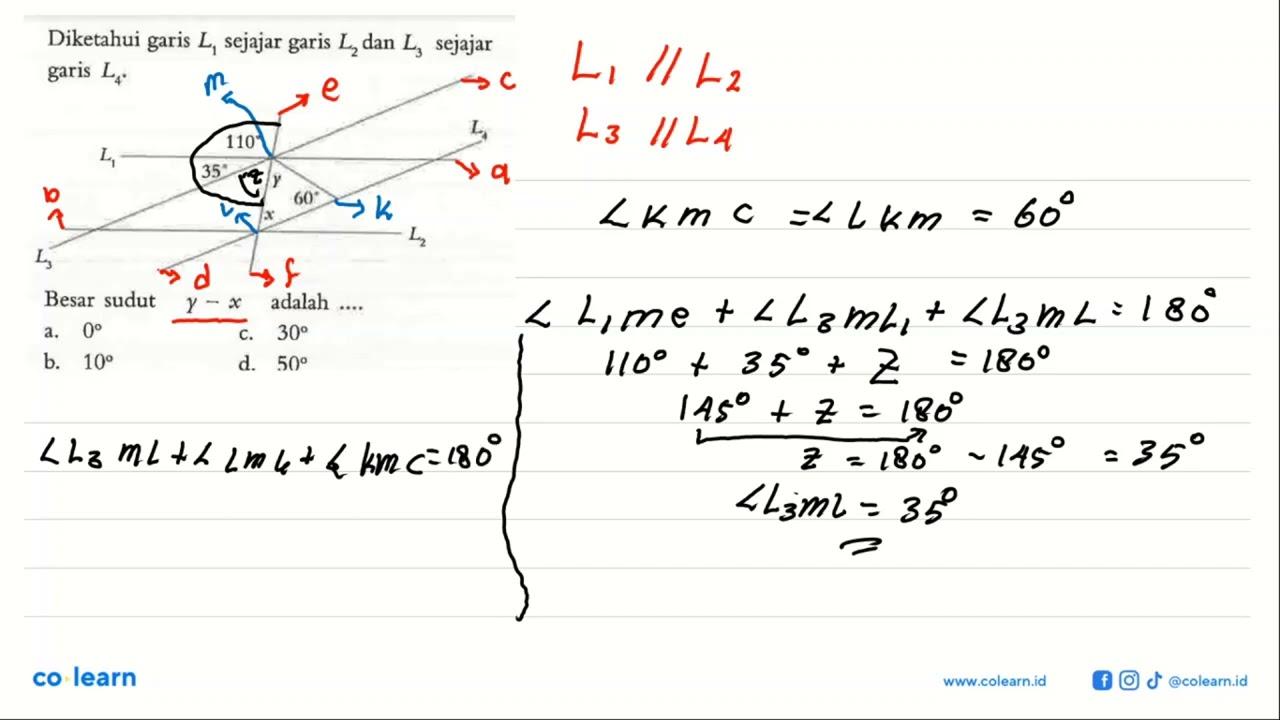 Diketahui garis L₁ sejajar garis L₂ dan L₃ sejajar
garis L₄.
m
e
c
110°
L₁
35°
z
y
L₄
a
b
60°
k
L
x
L₂
L₃
d
f
Besar sudut y – x adalah ....
a. 0° c. 30°
b. 10° d. 50°
∠L₃ mL + ∠ Lmk + ∠ kmc = 180°
L₁ // L₂
L₃ // L₄
∠kmc = ∠Lkm = 60°
∠ L₁me + ∠L₃mL₁ + ∠L₃mL = 180°
110° + 35° + z = 180°
145° + z = 180°
z = 180° - 145° = 35°
∠L₃mL = 35°
co learn
www.colearn.id
@colearn.id